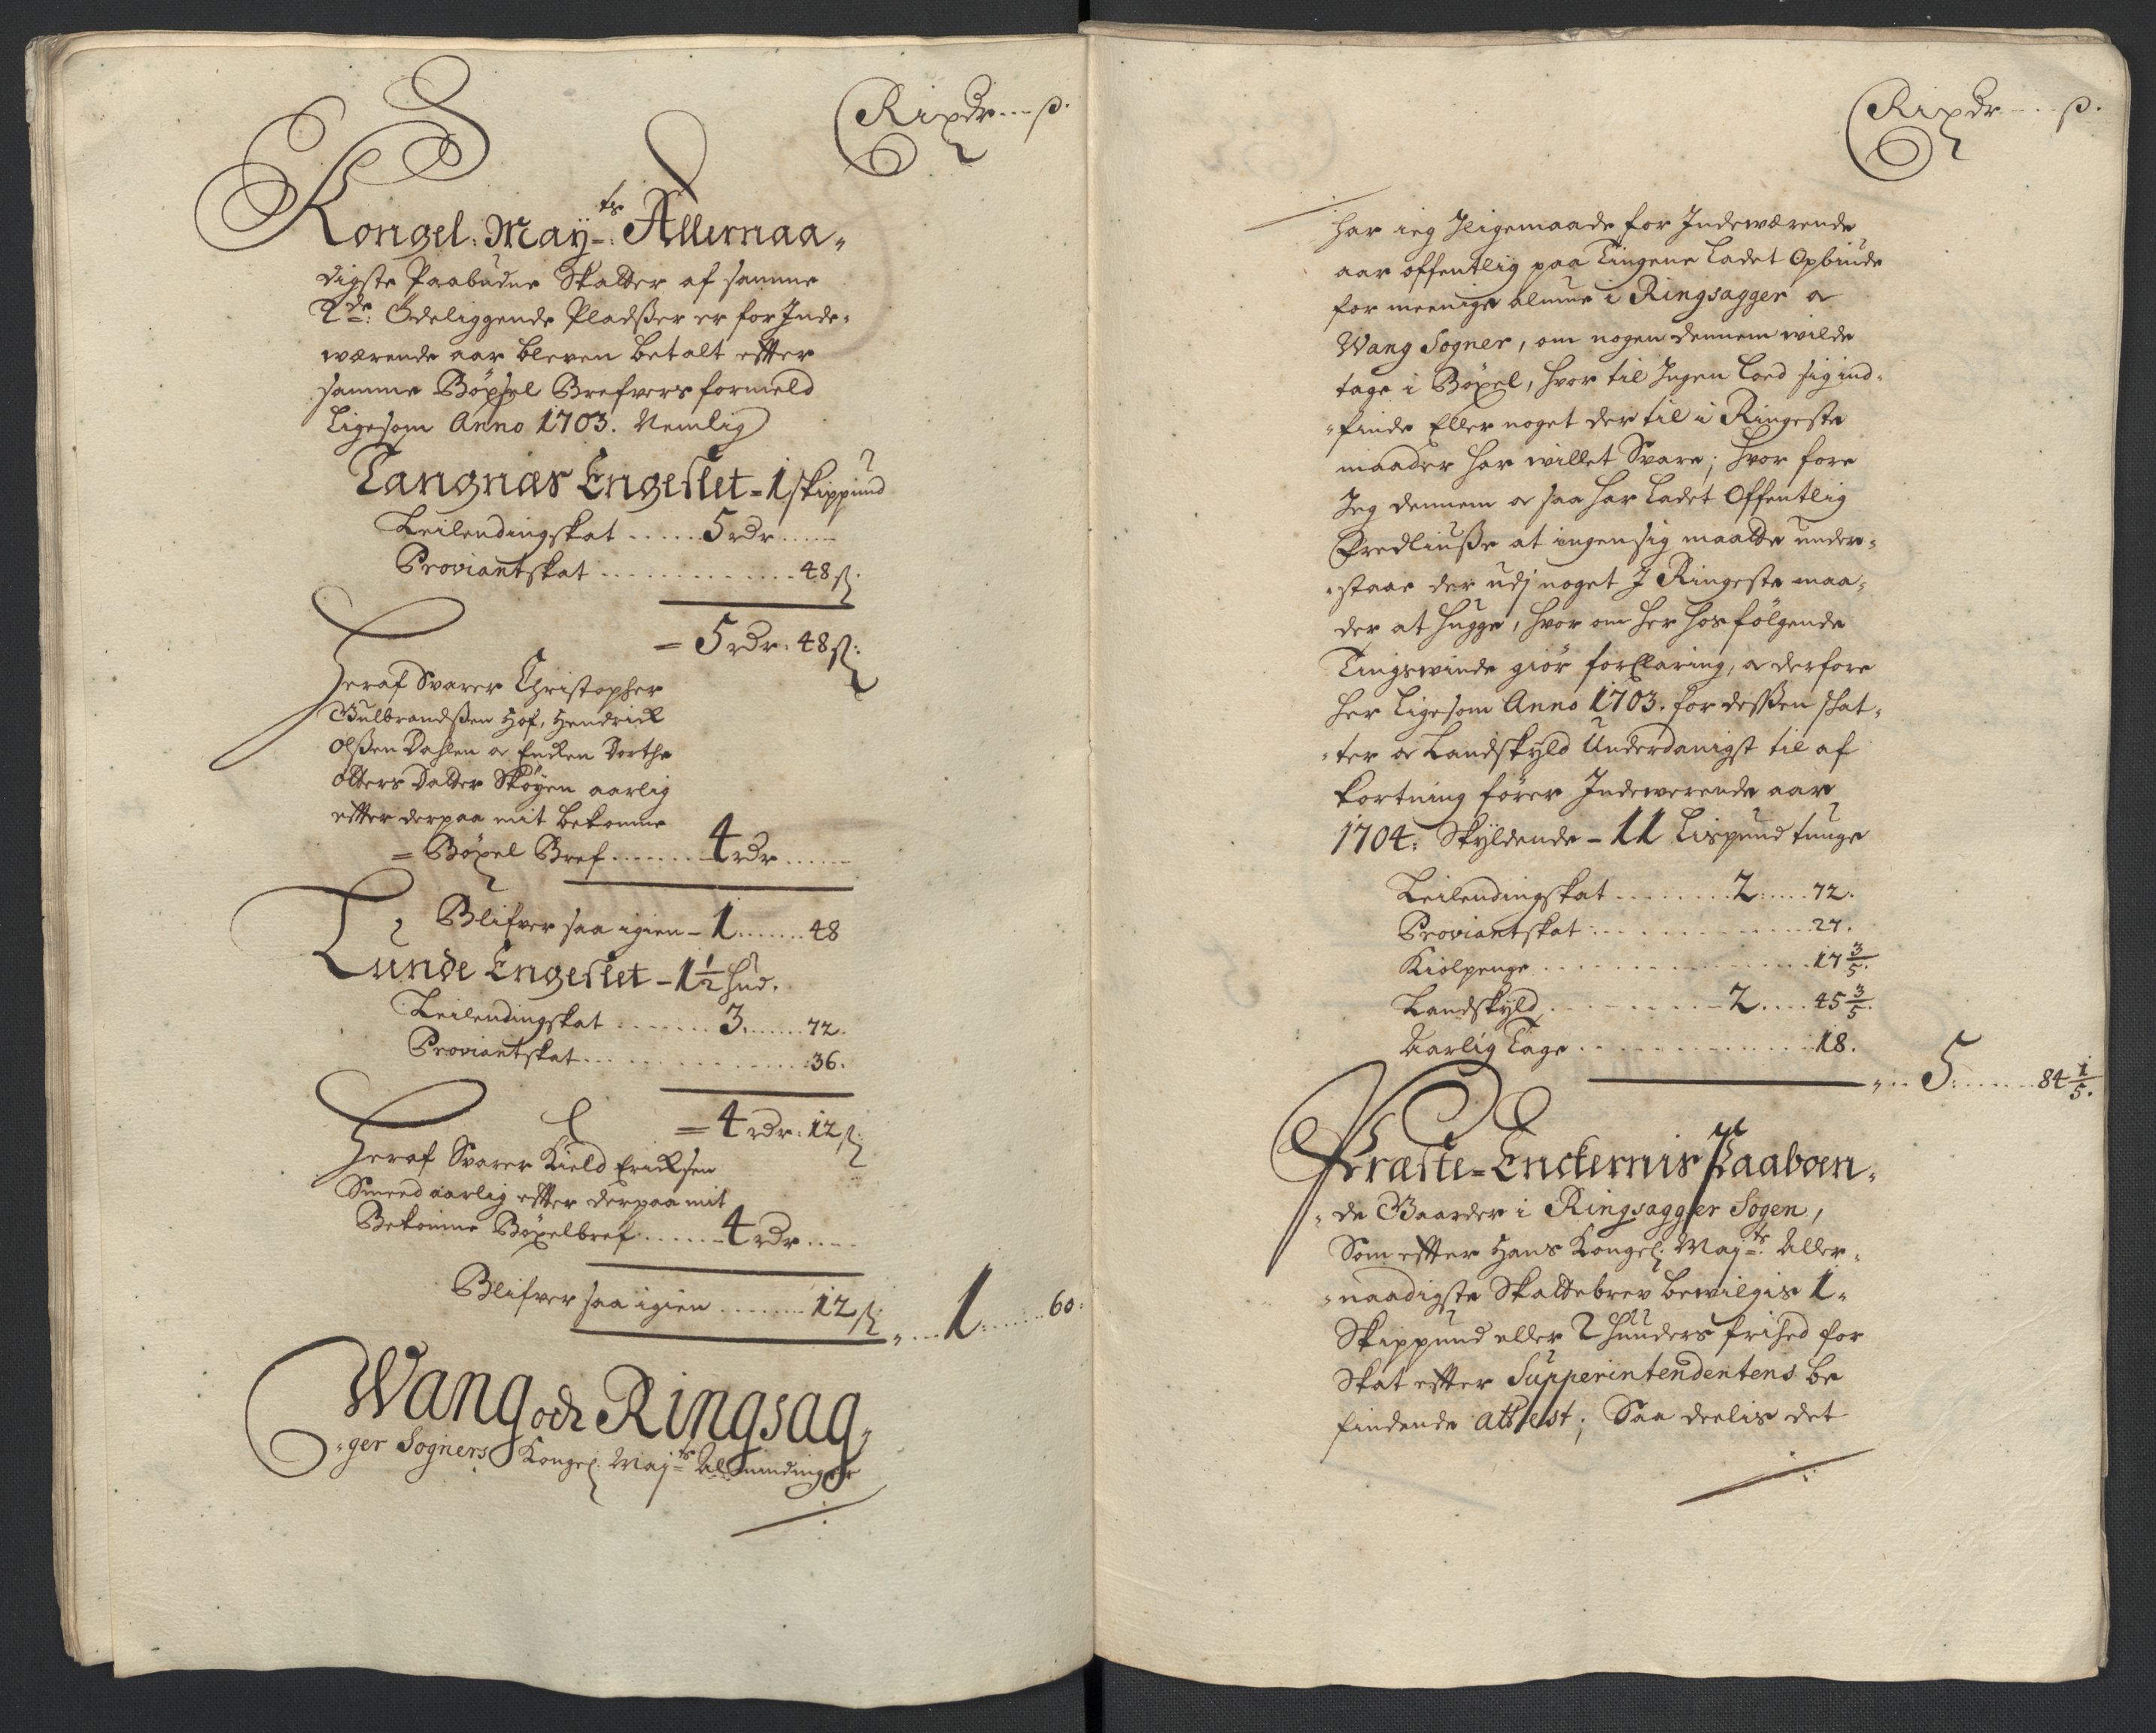 Rixdr --- ß.
Kongel: May:ts Allernaa-
digste Paabudne Skatter af samme
2de: Ödeliggende Pladßer er for Inde-
værende aar bleven betalt efter
samme Böxsel Brefvers formeld
Ligesom Anno 1703. Nemlig
Tangnæs Engeslet - 1 skippund
Leilendingskat ...... 5 rdr ......
Proviantskat ............. 48 ß.
= 5 rdr: 48 ß:
Heraf Svarer Christopher
Gulbrandßen Hof, Hendrick
Olßen Dahlen oc Encken Dorthe
Otters Datter Sköyen aarlig
efter derpaa mit bekomne
= Böxel Bref ....... 4 rdr ......
Blifver saa igien - 1 ....... 48
Lunde Engeslet - 1 1/2 hud.
Leilendingskat ....... 3 ....... 72.
Proviantskat ............... 36.
= 4 rdr: 12 ß
Heraf Svarer Kield Ericksen
Smeed aarlig efter derpaa mit
Bekomne Böxelbref ...... 4 rdr ....
Blifver saa igien ........ 12 ß: „ .... 1 ....... 60:
Wang och Ringsag-
-ger Sogners Kongel. May:ts Almindinger
Rixdr ---- ß.
har ieg Iligemaade for Indeværende
aar offentlig paa Tingene ladet Opbiude
for meenige almue i Ringsagger oc
Wang Sogner, om nogen dennem wilde
tage i Böxel, hvor til Ingen loed sig ind-
-finde Eller noget der til i Ringeste
maader har willet Svare; hvor fore
Jeg dennem oc saa har ladet Offentlig
Fredliuße at ingen sig maatte under-
-staae der udj noget I Ringeste maa-
der at hugge, hvor om her hos fölgende
Tingswinde giör forklaring, oc derfore
her ligesom Anno 1703. for deßsen skat-
-ter oc Landskyld Underdanigst til af
kortning förer Indewerende aar
1704: Skyldende - 11 Lispund tunge
Leilendingskat ........ 2 ..... 72.
Proviantskat ............... 27.
Kiölpenge ................ 17 3/5.
Landskyld ......... 2 .... 45 3/5.
Aarlig Tage ............... 18.
„ .. 5 ....... 84 1/5.
Præste-Enckernis Paaboen-
-de Gaarder i Ringsagger Sogen,
Som efter Hans Kongel. May:ts Aller-
-naadigste Skattebrev bewilgis 1-
Skippund eller 2 hunders frihed for
Skat efter Supperintendentens be
findende attest; Saa deelis det